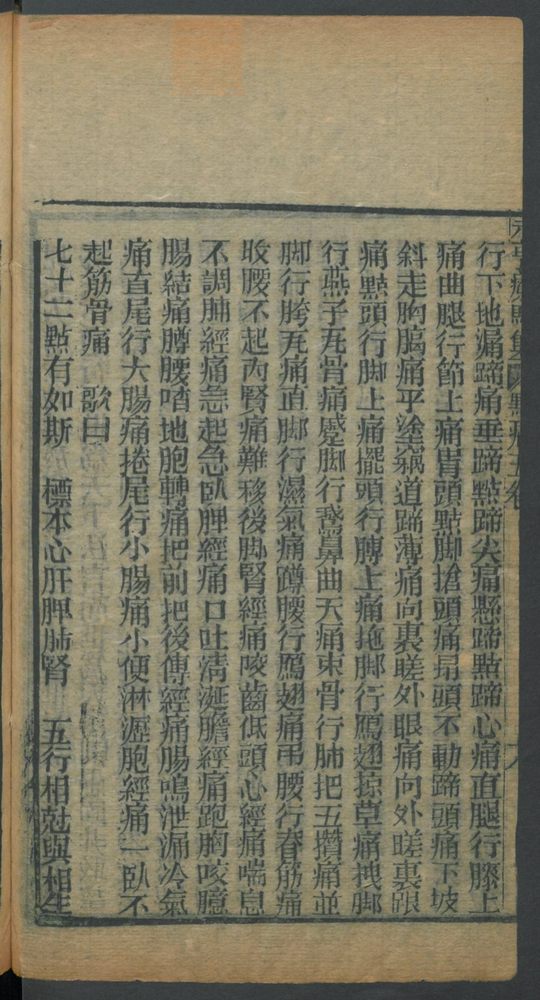 行下地漏蹄痛垂蹄點蹄尖痛懸蹄點蹄心痛直腿行膝上
痛曲腿行節上痛背頭點脚搶頭痛昻頭不動蹄頭痛下坡
斜走胸膈痛平塗窩道蹄薄痛向裏瞸外眼痛向外瞸裏跟
痛點頭行脚上痛擺頭行膊上痛拖脚行鴈翅掠草痛拽脚
行燕子瓦骨痛蹙脚行鵞鼻曲天痛束骨行肺把五攅痛並
脚行胯瓦痛直脚行濕氣痛蹲腰行鴈翅痛吊腰行脊筋痛
收腰不起內腎痛難移後脚腎經痛咬齒低頭心經痛喘息
不調肺經痛急起急臥脾經痛口吐淸涎膽經痛跑胸咬臆
腸結痛蹲腰喳地胞轉痛把前把後傳經痛腸鳴泄漏冷氣
痛直尾行大腸痛捲尾行小腸痛小便淋瀝胞經痛一臥不
起筋骨痛 歌曰
七十二點有如斯 標本心肝脾肺腎 五行相尅與相生